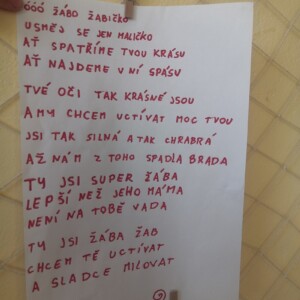 ÓÓÓ ŽÁBO ŽABIČKO
USMĚJ SE JEN MALIČKO
AŤ SPATŘÍME TVOU KRÁSU
AŤ NAJDEME V NÍ SPÁSU
TVÉ OČI TAK KRÁSNÉ JSOU
A MY CHCEM UCTÍVAT MOC TVOU
JSI TAK SILNÁ A TAK CHRABRÁ
AŽ NÁM Z TOHO SPADLA BRADA
TY JSI SUPER ŽÁBA
LEPŠÍ NEŽ JEHO MÁMA
NENÍ NA TOBĚ VADA
TY JSI ŽÁBA ŽAB
CHCEM TĚ UCTÍVAT
A SLADCE MILOVAT